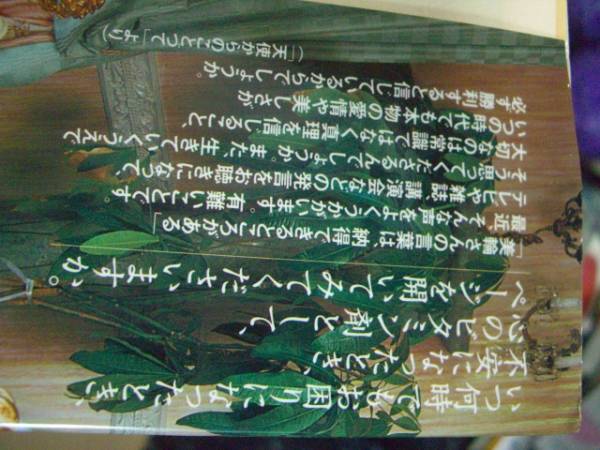 いつ何時でもお困りになったとき、
不安になったとき、
心のビタミン剤として、
ページを開いてみてくださいますか。
「美輪さんの言葉は、納得できるところがある」
最近、そんな声をよくうかがいます。有難いことです。
テレビや雑誌、講演会などの発言をお聴きになって、
そう思ってくださるんでしょうか。また、生きていくうえで
大切なのは常識ではなく真理を信じること、
いつの時代でも本物の愛情や美しさが
必ず勝利すると信じているからでしょうか。
(「天使からのことづて」より)